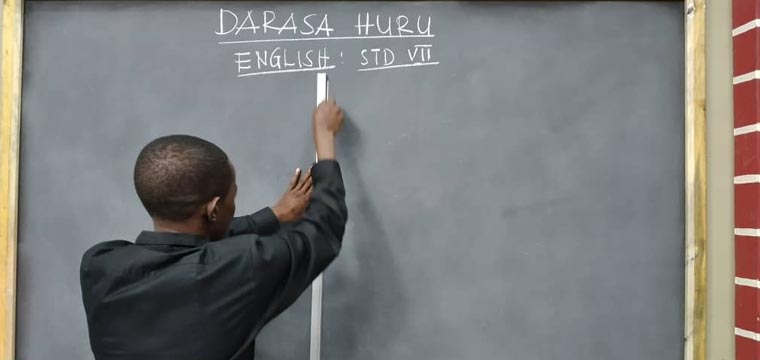 DARASA HURU
ENGLISH : STD VII